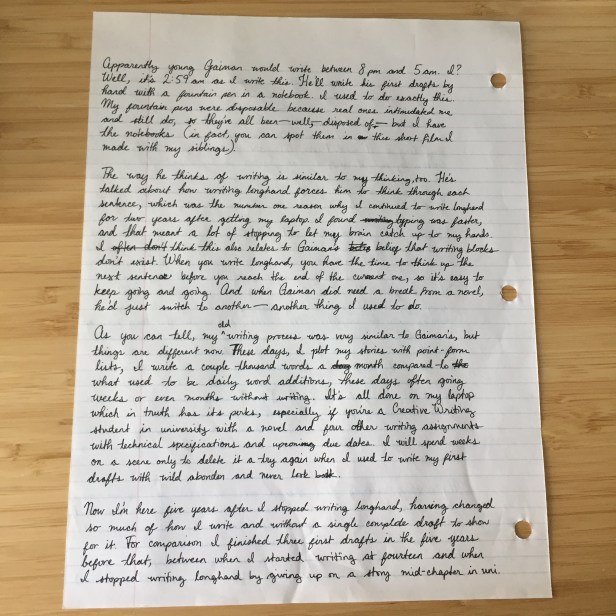 Apparently young Gaiman would write between 8 pm and 5 am. I?
Well, it's 2:59 am as I write this. He'll write his first drafts by
hand with a fountain pen in a notebook. I used to do exactly this.
My fountain pens were disposable because real ones intimidated me
and still do, so they're all been—well, disposed of,—but I have
the notebooks (in fact, you can spot them in this short film I
made with my siblings).
The way he thinks of writing is similar to my thinking, too. He's
talked about how writing longhand forces him to think through each
sentence, which was the number one reason why I continued to write longhand
for two years after getting my laptop. I found writing typing was faster,
and that meant a lot of stopping to let my brain catch up to my hands.
I often don't think this also relates to Gaiman's belief that writing blocks
don't exist. When you write longhand, you have the time to think up the
next sentence before you reach the end of the current one, so it's easy to
keep going and going. And when Gaiman did need a break from a novel,
he'd just switch to another—another thing I used to do.
As you can tell, my old writing process was very similar to Gaiman's, but
things are different now. These days, I plot my stories with point-form
lists, I write a couple thousand words a day month compared to the
what used to be daily word additions, these days often going
weeks or even months without writing. It's all done on my laptop
which in truth has its perks, especially if you're a Creative Writing
student in university with a novel and four other writing assignments
with technical specifications and upcoming due dates. I will spend weeks
on a scene only to delete it a try again when I used to write my first
drafts with wild abandon and never look back.
Now I'm here five years after I stopped writing longhand, having changed
so much of how I write and without a single complete draft to show
for it. For comparison I finished three first drafts in the five years
before that, between when I started writing at fourteen and when
I stopped writing longhand by giving up on a story mid-chapter in uni.